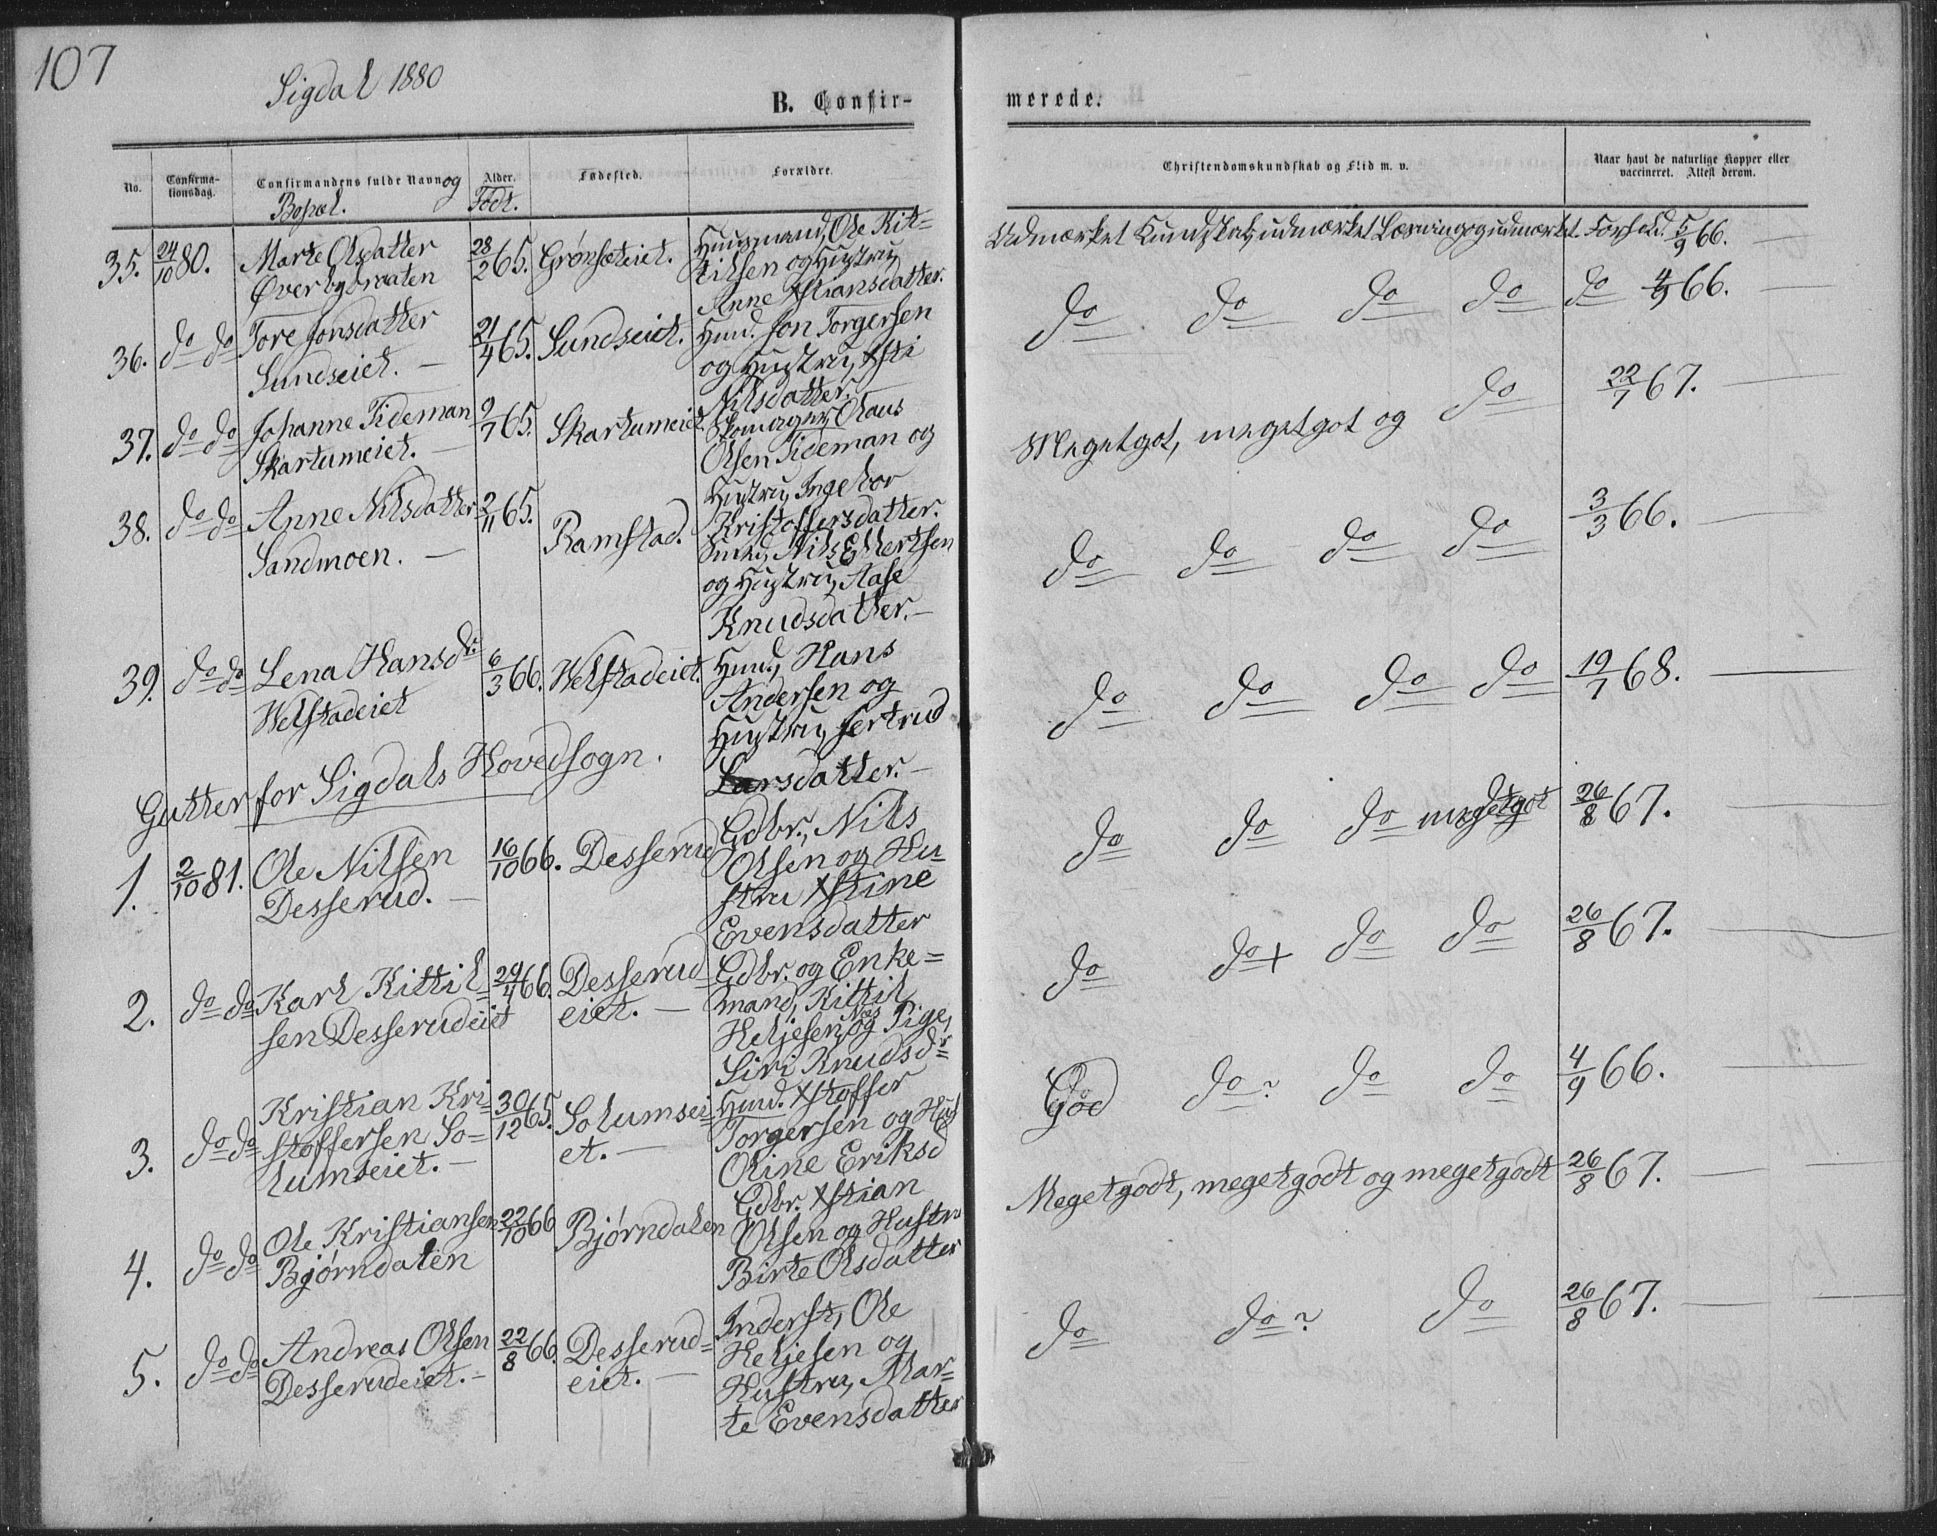 107
Sigdal 1880
B. Confir-
merede.
No.
Confirma-
tionsdag.
Confirmandens fulde Navn og
Bopæl.
Alder.
Født.
Fødested.
Forældre.
Christendomskundskab og Flid m. v.
Naar havt de naturlige Kopper eller
vaccineret. Attest derom.
35. 24/10 80. Marte Olsdatter
Øverbybraaten
28/2 65. Grønseteiet.
Huusmand, Ole Kit-
tilsen og Hustru
Anne Xstiansdatter.
Udmærket Kundskab, udmærket Læsning og udmærket Forhold. 5/9 66.
36. do do Tore Jonsdatter
Sundseiet. —
21/4 65. Sundseiet.
Hmd. Jon Torgersen
og Hustru, Xsti
Nilsdatter.
do do do do do 4/9 66.
37. do do Johanne Tideman
Skartumeiet. —
9/7 65. Skartumeiet.
Skomager Olaus
Olsen Tideman og
Hustru, Ingebor
Kristoffersdatter.
Megetgot, megetgot og do 22/7 67.
38. do do Anne Nilsdatter
Sandmoen. —
2/11 65. Ramstad.
Nils Ellertsen
og Hustru, Aase
Knudsdatter. —
do do do do 3/3 66.
39. do do Lena Hansdr.
Welstadeiet
6/3 66. Welstadeiet.
Hmd., Hans
Andersen og
Hustru, Jertrud
Larsdatter. —
do do do do 19/7 68.
Gutter for Sigdals Hovedsogn.
1. 2/10 81. Ole Nilsen
Desserud. —
16/10 66. Desserud
Gdbr., Nils
Olsen og Hu-
stru Xstine
Evensdatter
do do do megetgot 26/8 67.
2. do do Karl Kittil-
sen Desserudeiet
29/4 66. Desserud-
eiet. —
Gdbr. og Enke-
mand, Kittil
Heljesen, og Pige,
Siri Knudsdr
do do + do do 26/8 67.
3. do do Kristian Kri-
stoffersen So-
lumseiet. —
30/12 65. Solumsei-
et. —
Hmd. Xstoffer
Torgersen og Hust
Oline Eriksd
God do ? do do 4/9 66.
4. do do Ole Kristiansen
Bjørndalen
22/10 66 Bjørndalen
Gdbr. Xstian
Olsen og Hustru
Birte Olsdatter
Megetgodt, megetgodt og megetgodt 26/8 67.
5. do do Andreas Olsen
Desserudeiet. —
22/8 66. Desserud-
eiet. —
Inderst, Ole
Heljesen og
Hustru, Mar-
te Evensdatter
do do ? do 26/8 67.